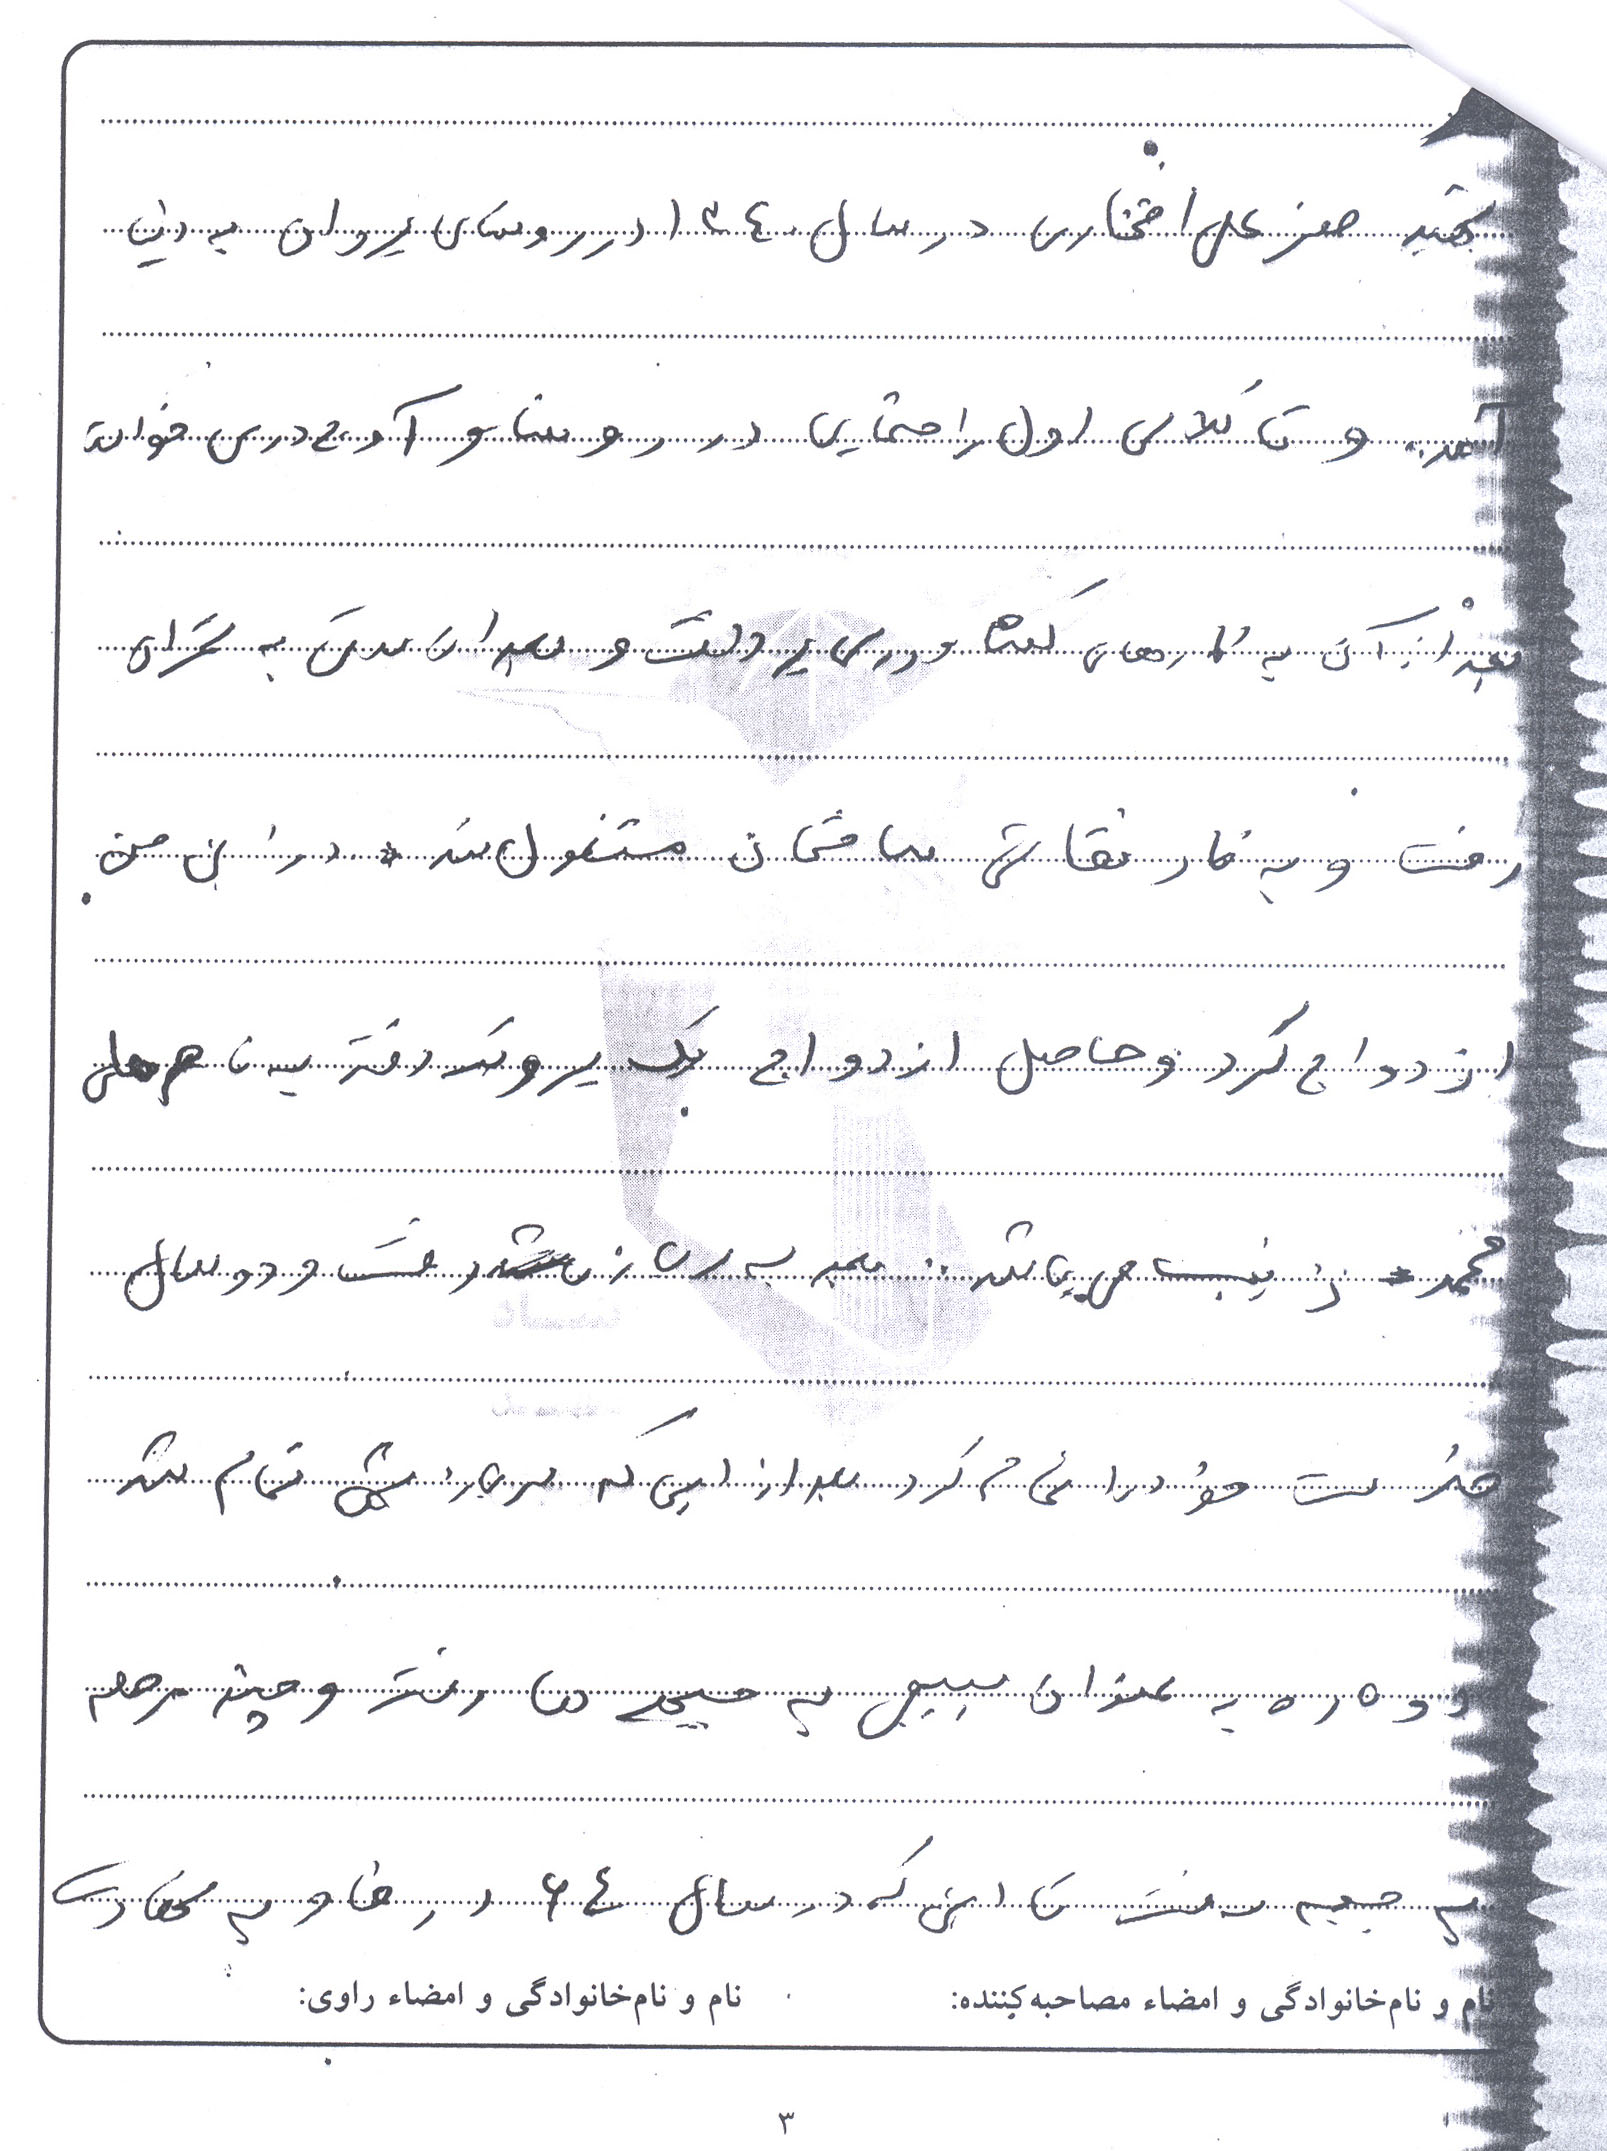 شهید صفر علی افتخاری در سال ۱۳۴۰ در روستای یروان به دنیا
آمد. و تا کلاس اول راهنمایی در روستا و آوج درس خواند
بعد از آن به کارهای کشاورزی پرداخت و بعد از مدتی به تهران
رفت و به کار نقاشی ساختمان مشغول شد. در این حین
ازدواج کرد و حاصل ازدواج یک پسر و یک دختر به نام علی
محمد و زینب می باشد. بعد به سربازی رفت و دو سال
خدمت خود را تمام کرد بعد از این که سربازیش تمام شد
دوباره به عنوان بسیجی به جبهه ها رفت و چند مرحله
به جبهه رفت تا این که در سال ۶۴ در فاو به شهادت
نام و نام‌خانوادگی و امضاء مصاحبه‌کننده:
نام و نام‌خانوادگی و امضاء راوی:
۳